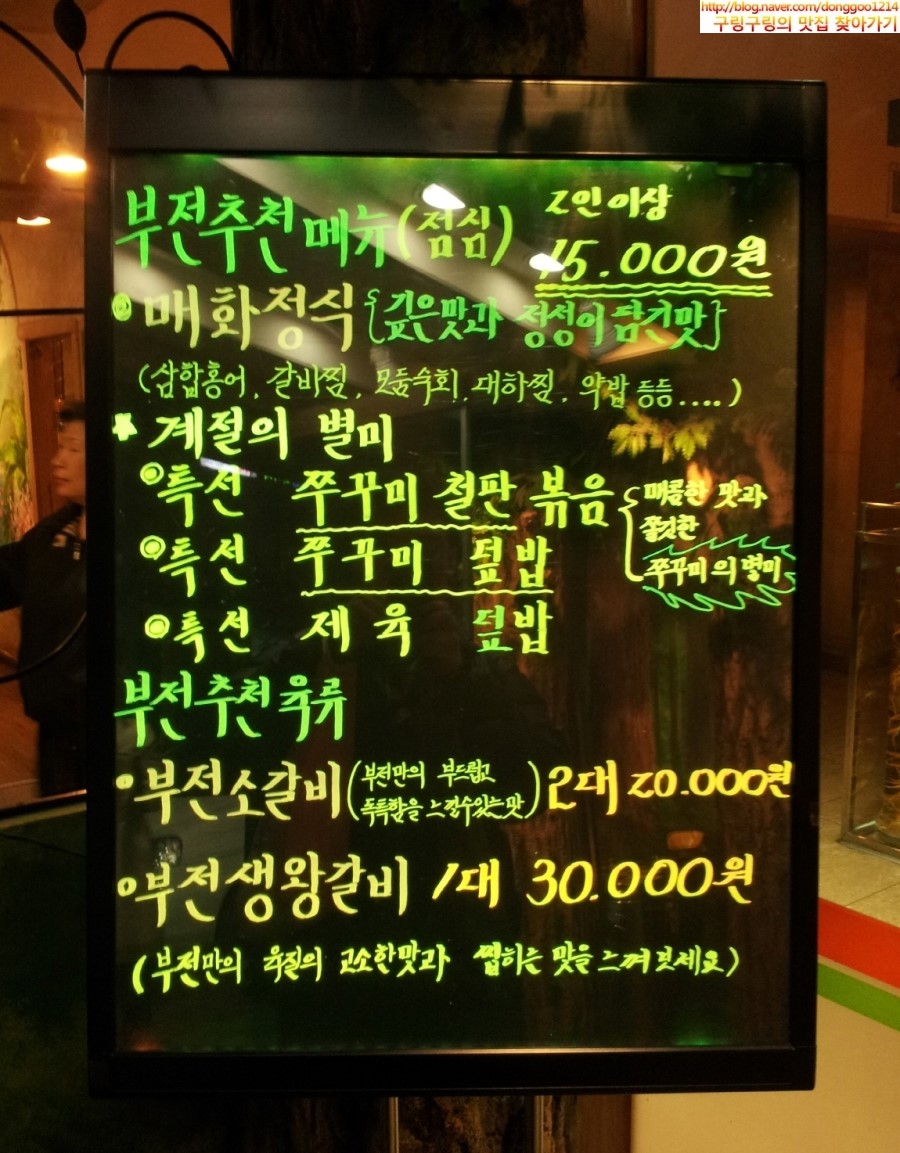 http://blog.naver.com/donggoo1214
구링구링의 맛집 찾아가기
부전추천메뉴(점심) 2인이상
15.000원
매화정식 {깊은맛과 정성이 담긴맛}
(삼합홍어, 갈비찜, 모듬숙회, 대하찜, 약밥 등등....)
계절의 별미
특선 쭈꾸미 철판 볶음
특선 쭈꾸미 덮밥
특선 제육 덮밥
매콤한 맛과
쫄깃한
쭈꾸미의 별미
부전추천육류
부전소갈비 (부전만의 부드럽고
독특함을 느낄수있는 맛) 2대 20.000원
부전생왕갈비 1대 30.000원
(부전만의 육질의 고소한맛과 씹히는 맛을 느껴보세요)